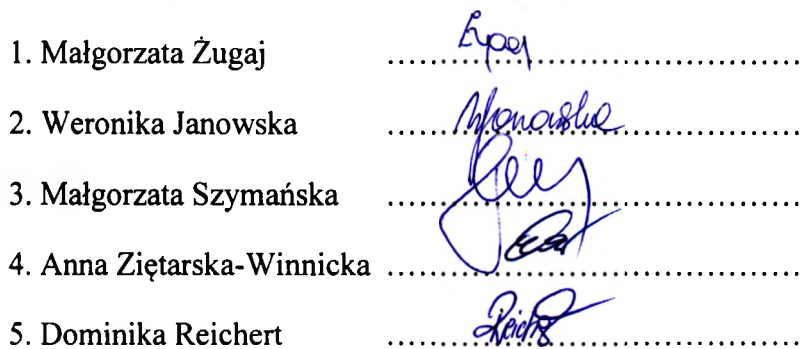 1. Małgorzata Żugaj ..........................................
2. Weronika Janowska ..........................................
3. Małgorzata Szymańska ..........................................
4. Anna Ziętarska-Winnicka ..........................................
5. Dominika Reichert ..........................................